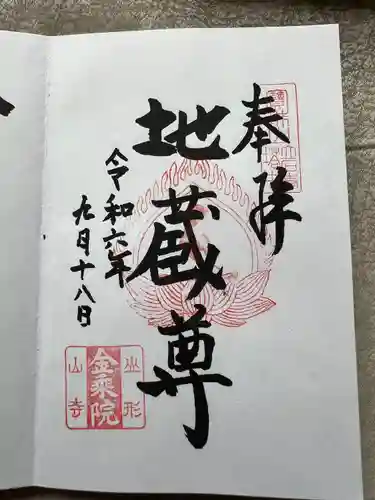 奉拝
地蔵尊
令和六年
九月十八日
山形
金乗院
山寺